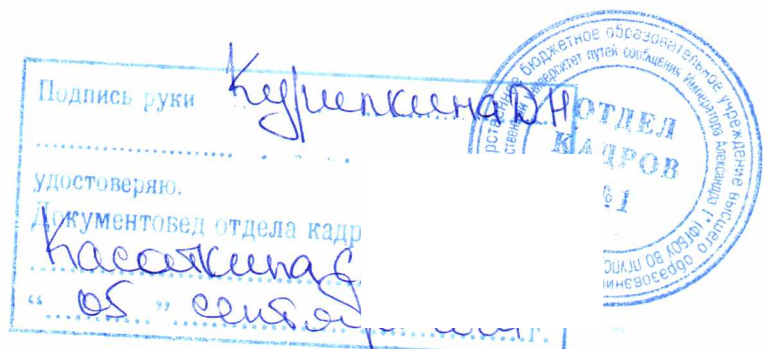 Подпись руки Курипкина Д Н
удостоверяю.
Документовед отдела кадр
Касаткина Е
“ 05 ” сентября г.
бюджетное образовательное учреждение высшего образования
университет путей сообщения Императора Александра I" (ФГБОУ ВО ПГУПС
ОТДЕЛ
КАДРОВ
№ 1